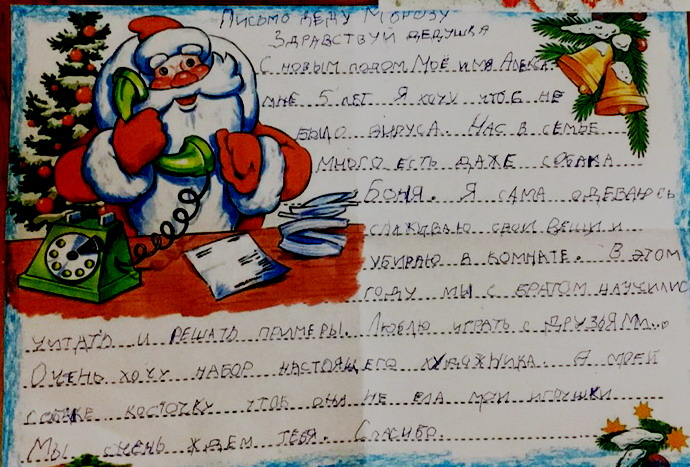 Письмо Деду Морозу
Здравствуй дедушка
С новым годом Моё имя Алекса.
мне 5 лет. Я хочу чтоб не
было вируса. Нас в семье
много есть даже собака
Боня. Я сама одеваюсь
слаживаю свои вещи и
убираю в комнате. В этом
году мы с братом научились
читать и решать примеры. Люблю играть с друзьями...
Очень хочу набор настоящего художника. А моей
собаке косточку чтоб она не ела мои игрушки
Мы очень ждем тебя. Спасибо.